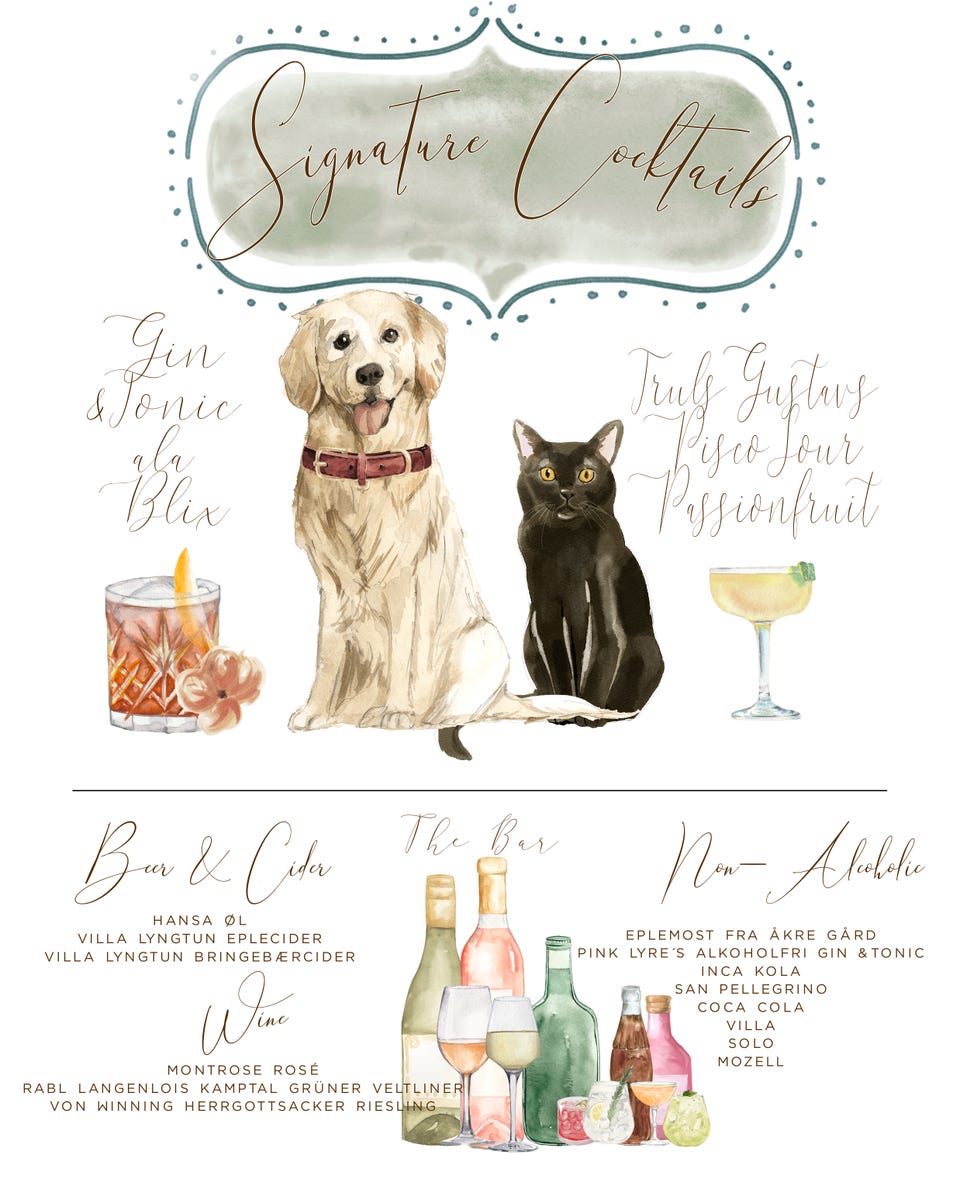 Signature Cocktails
Gin
&Tonic
ala
Blix
Truls Gustavs
Pisco Sour
Passionfruit
The Bar
Beer & Cider
HANSA ØL
VILLA LYNGTUN EPLECIDER
VILLA LYNGTUN BRINGEBÆRCIDER
Wine
MONTROSE ROSÉ
RABL LANGENLOIS KAMPTAL GRÜNER VELTLINER
VON WINNING HERRGOTTSACKER RIESLING
Non- Alcoholic
EPLEMOST FRA ÅKRE GÅRD
PINK LYRE´S ALKOHOLFRI GIN &TONIC
INCA KOLA
SAN PELLEGRINO
COCA COLA
VILLA
SOLO
MOZELL